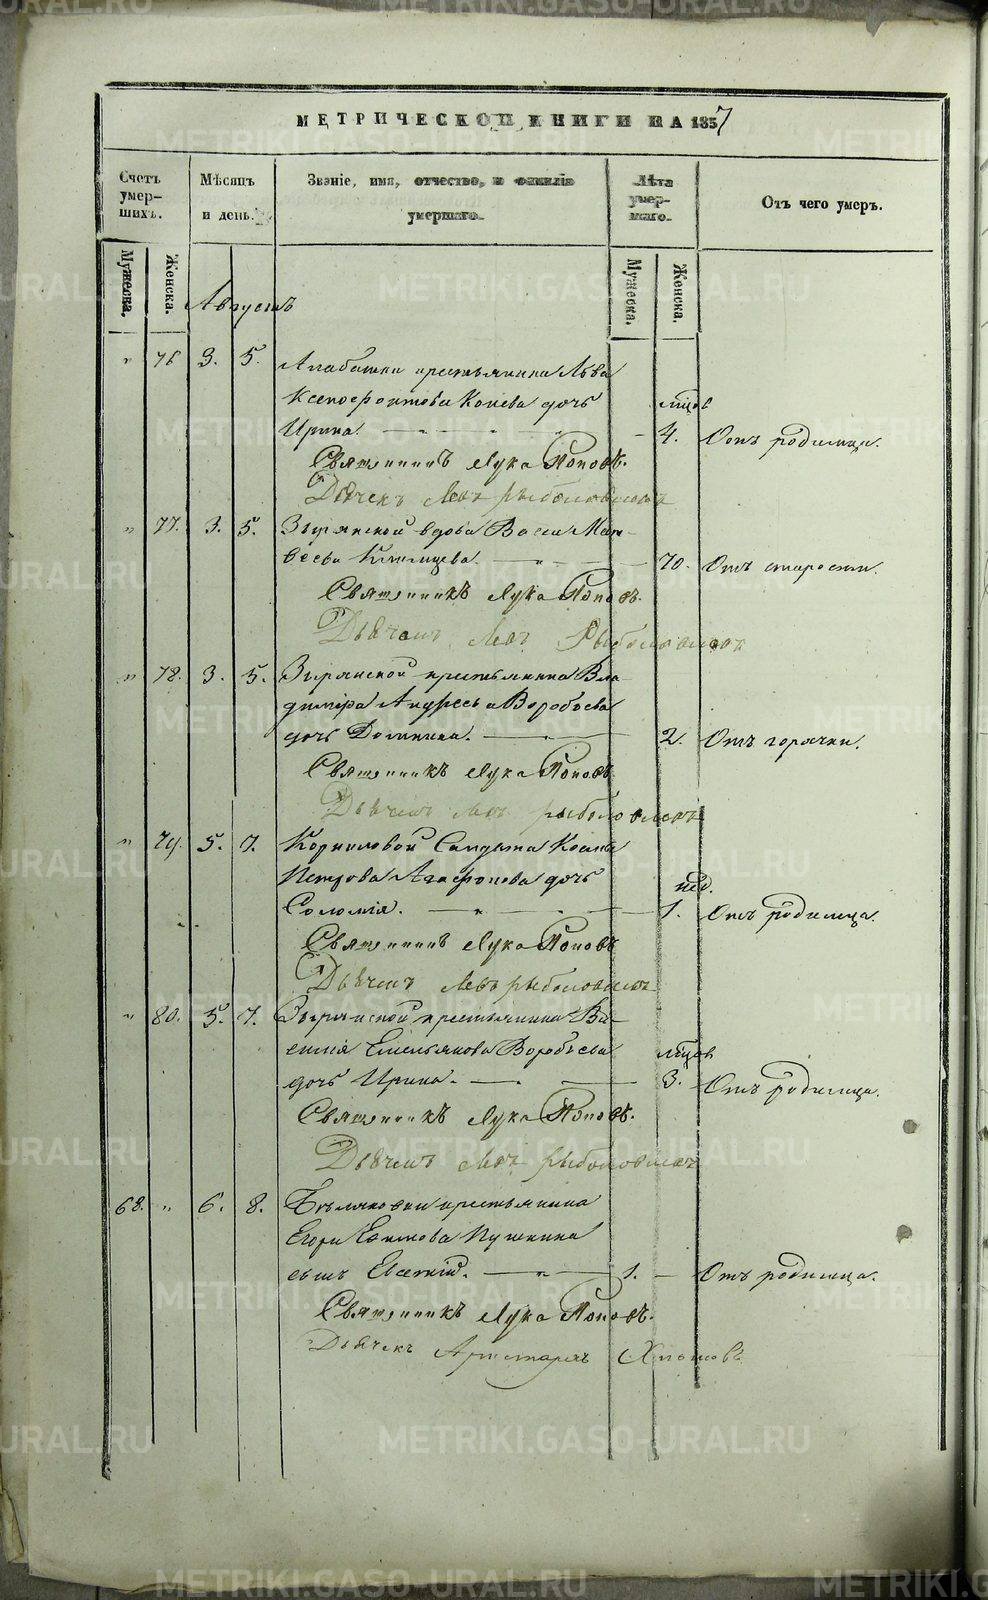 МЕТРИЧЕСКОЙ КНИГИ НА 1857
Счетъ умер-шихъ.
Мѣсяцъ и день.
Званіе, имя, отчество, и фамилія умершаго.
Лѣта умер-шаго.
Отъ чего умеръ.
Мужеска. Женска. Мужеска. Женска.
Августъ
" 76 3. 5. крестьянина Льва
Ксенофонтова Конева дочь мѣсяцов
Ирина. 4. Отъ родимца.
Священникъ Лука Поповъ.
Дьячекъ Левъ Рыболовлевъ
" 77. 3. 5. Зырянской вдова Васса Мат-
вѣева 70. Отъ старости.
Священникъ Лука Поповъ.
Дьячекъ Левъ Рыболовлевъ
" 78. 3. 5. Зырянской крестьянина Вла-
диміра Андреева Воробьева
дочь Домника. 2. Отъ горячки.
Священникъ Лука Поповъ
Дьячекъ Левъ Рыболовлевъ
" 79. 5. 7. Корниловой Солдата
Петрова Агафонова дочь нед.
Соломія. 1. Отъ родимца.
Священникъ Лука Поповъ
Дьячекъ Левъ Рыболовлевъ
" 80. 5. 7. Зырянской крестьянина Ва-
силія Емельянова Воробьева мѣсяцов
дочь Ирина. 3. Отъ родимца.
Священникъ Лука Поповъ.
Дьячекъ Левъ Рыболовлевъ
68. " 6. 8. крестьянина
Егора Ефимова Пушкина
сынъ Евсевій. 1. Отъ родимца.
Священникъ Лука Поповъ.
Дьячекъ Аристархъ
METRIKI.GASO-URAL.RU